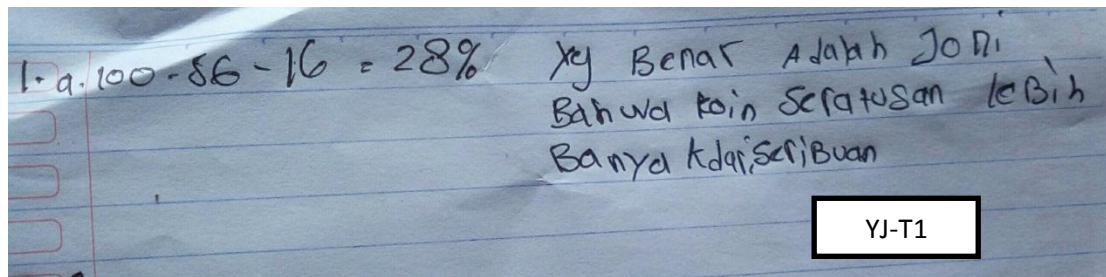 1. a. 100 - 56 - 16 = 28% yg Benar Adalah Joni
Bahwa koin Seratusan leBih
Banya kdari SeriBuan
YJ-T1